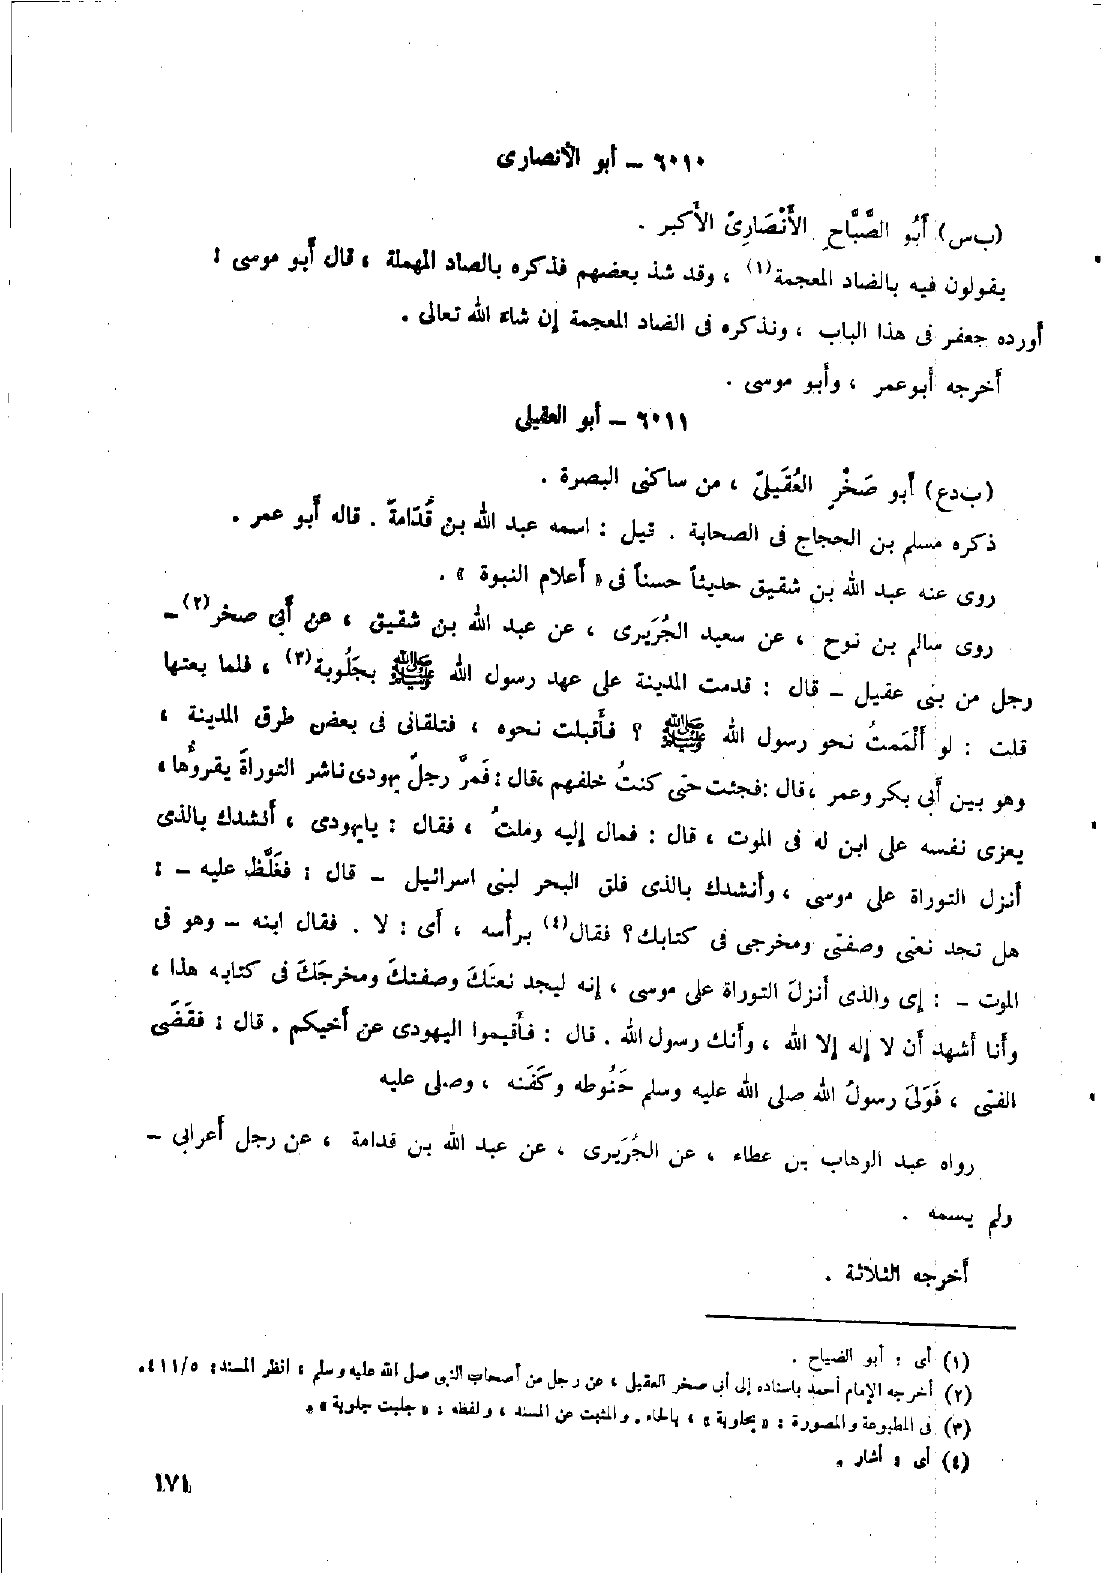 ٦٠١٠ – أبو الأنصارى
(ب س) أَبُو الصَّبَّاحِ الأَنْصَارِىّ الأَكبر .
يقولون فيه بالضاد المعجمة (١) ، وقد شذ بعضهم فذكره بالصاد المهملة ، قال أَبو موسى :
أورده جعفر فى هذا الباب ، ونذكره فى الضاد المعجمة إن شاء الله تعالى .
أَخرجه أَبو عمر ، وأَبو موسى .
٦٠١١ – أبو العقيلى
(ب د ع) أَبو صَخْرٍ العُقَيلىّ ، من ساكنى البصرة .
ذكره مسلم بن الحجاج فى الصحابة . قيل : اسمه عبد الله بن قُدَامةَ . قاله أَبو عمر .
روى عنه عبد الله بن شقيق حديثاً حسناً فى « أَعلام النبوة » .
روى سالم بن نوح ، عن سعيد الجُرَيرى ، عن عبد الله بن شقيق ، عن أَبى صخر (٢) –
رجل من بنى عقيل – قال : قدمت المدينة على عهد رسول الله ﷺ بجَلُوبة (٣) ، فلما بعتها
قلت : لو أَلْمَمتُ نحو رسول الله ﷺ ؟ فأَقبلت نحوه ، فتلقانى فى بعض طرق المدينة ،
وهو بين أَبى بكر وعمر ، قال : فجئت حتى كنتُ خلفهم ، قال : فَمرَّ رجلٌ يهودى ناشر التوراةَ يقروُّها ،
يعزى نفسه على ابن له فى الموت ، قال : فمال إليه ومِلتُ ، فقال : يايهودى ، أَنشدك بالذى
أَنزل التوراة على موسى ، وأَنشدك بالذى فلق البحر لبنى اسرائيل – قال : فغَلَّظ عليه – :
هل تجد نعتى وصفتى ومخرجى فى كتابك ؟ فقال (٤) برأْسه ، أَى : لا . فقال ابنه – وهو فى
الموت – : إى والذى أَنزلَ التوراة على موسى ، إنه ليجد نعتَكَ وصفتكَ ومخرجَكَ فى كتابه هذا ،
وأَنا أشهد أَن لا إله إلا الله ، وأَنك رسول الله . قال : فأَقيموا اليهودى عن أَخيكم . قال : فقَضَى
الفتى ، فَوَلىَ رسولُ الله صلى الله عليه وسلم حَنُوطه وكَفَنه ، وصلى عليه
رواه عبد الوهاب بن عطاء ، عن الجُرَيرى ، عن عبد الله بن قدامة ، عن رجل أَعرابى –
ولم يسمه .
أَخرجه الثلاثة .
(١) أى : أبو الضياح .
(٢) أخرجه الإمام أحمد بإسناده إلى أبى صخر العقيلى ، عن رجل من أصحاب النبى صلى الله عليه وسلم ، انظر المسند: ٤١١/٥.
(٣) فى المطبوعة والمصورة : « بحلوبة » ، بالحاء. والمثبت عن المسند ، ولفظه : « جلبت جلوبة ».
(٤) أى : أشار .
١٧١